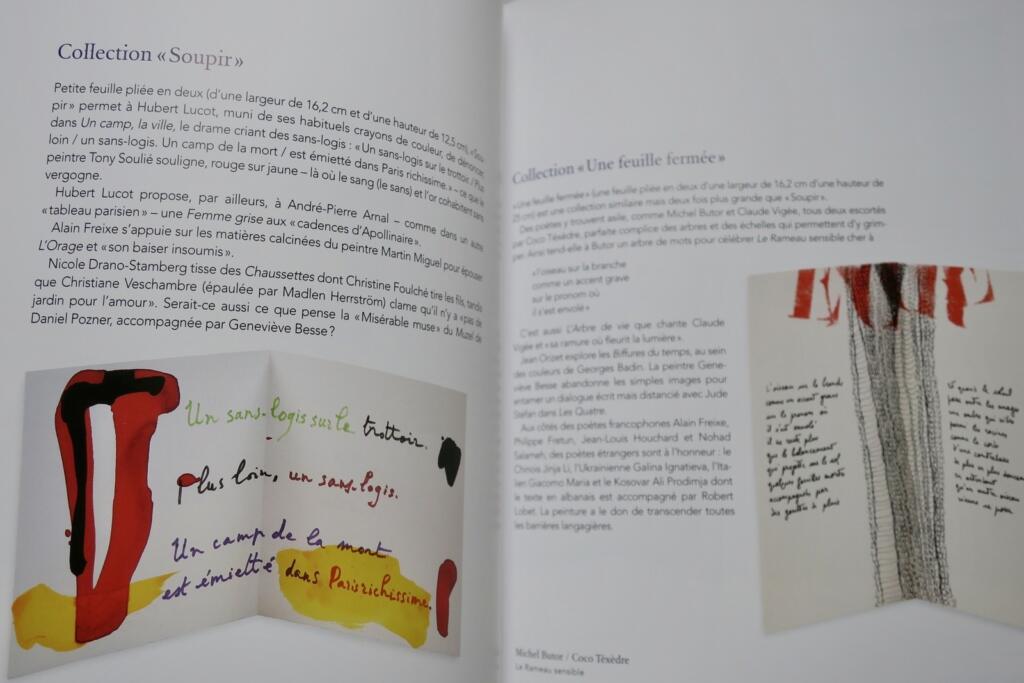 Collection « Soupir »
Petite feuille pliée en deux (d'une largeur de 16,2 cm et d'une hauteur de 12,5 cm), « Sou-
pir » permet à Hubert Lucot, muni de ses habituels crayons de couleur, de dénoncer
dans Un camp, la ville, le drame criant des sans-logis : « Un sans-logis sur le trottoir. / Plus
loin / un sans-logis. Un camp de la mort / est émietté dans Paris richissime. » – ce que le
peintre Tony Soulié souligne, rouge sur jaune – là où le sang (le sans) et l'or cohabitent sans
vergogne.
Hubert Lucot propose, par ailleurs, à André-Pierre Arnal – comme dans un autre
« tableau parisien » – une Femme grise aux « cadences d'Apollinaire ».
Alain Freixe s'appuie sur les matières calcinées du peintre Martin Miguel pour épouser
L'Orage et « son baiser insoumis ».
Nicole Drano-Stamberg tisse des Chaussettes dont Christine Foulché tire les fils, tandis
que Christiane Veschambre (épaulée par Madlen Herrström) clame qu'il n'y a « pas de
jardin pour l'amour ». Serait-ce aussi ce que pense la « Misérable muse » du Muzel de
Daniel Pozner, accompagnée par Geneviève Besse ?
Un sans-logis sur le trottoir.
Plus loin, un sans-logis.
Un camp de la mort
est émietté dans Paris richissime.
Collection « Une feuille fermée »
« Une feuille fermée » (une feuille pliée en deux d'une largeur de 16,2 cm d'une hauteur de
25 cm) est une collection similaire mais deux fois plus grande que « Soupir ».
Des poètes y trouvent asile, comme Michel Butor et Claude Vigée, tous deux escortés
par Coco Téxèdre, parfaite complice des arbres et des échelles qui permettent d'y grim-
per. Ainsi tend-elle à Butor un arbre de mots pour célébrer Le Rameau sensible cher à
« l'oiseau sur la branche
comme un accent grave
sur le pronom où
il s'est envolé »
C'est aussi L'Arbre de vie que chante Claude
Vigée et « sa ramure où fleurit la lumière ».
Jean Orizet explore les Biffures du temps, au sein
des couleurs de Georges Badin. La peintre Gene-
viève Besse abandonne les simples images pour
entamer un dialogue écrit mais distancié avec Jude
Stefan dans Les Quatre.
Aux côtés des poètes francophones Alain Freixe,
Philippe Fretun, Jean-Louis Houchard et Nohad
Salameh, des poètes étrangers sont à l'honneur : le
Chinois Jinja Li, l'Ukrainienne Galina Ignatieva, l'Ita-
lien Giacomo Maria et le Kosovar Ali Prodimja dont
le texte en albanais est accompagné par Robert
Lobet. La peinture a le don de transcender toutes
les barrières langagières.
L'oiseau sur la branche
comme un accent grave
sur le pronom où
il s'est envolé
il ne reste plus
que le balancement
qui projette sur le sol
quelques feuilles mortes
accompagnées par
des gouttes de pluie
Michel Butor / Coco Téxèdre
Le Rameau sensible